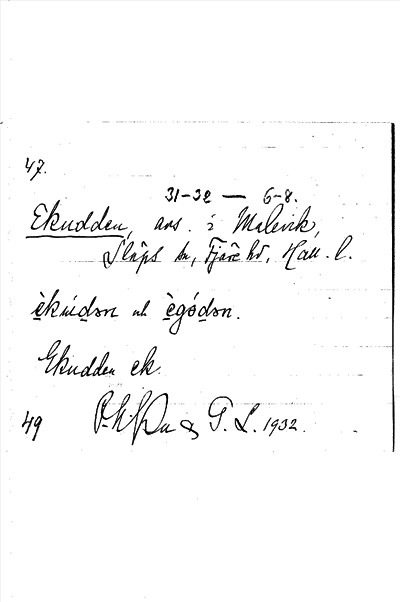 47.
31-32 — 6-8.
Ekudden, ans. i Malevik,
Släps sn, Fjäre hd, Hall. l.
èkúdən ock ègódən.
Ekudden ek.
49 & T. L. 1932.